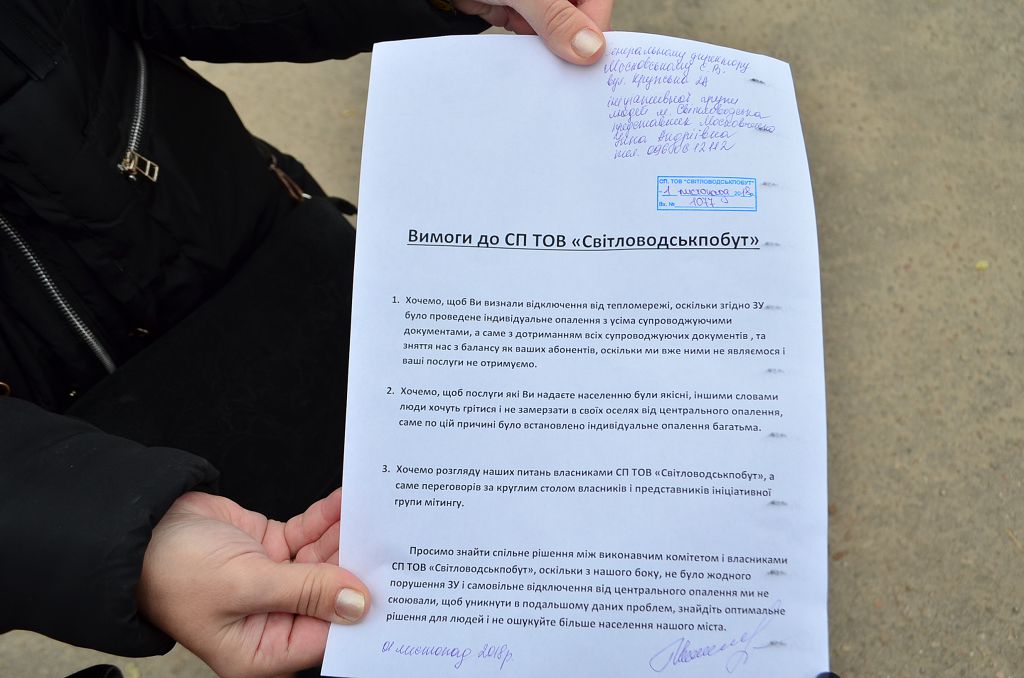 Генеральному директору
Московському С.В.
вул.
ініціативної групи
людей м. Світловодська
представник
Андріївна
тел.
СП. ТОВ "СВІТЛОВОДСЬКПОБУТ"
1 листопада 2018р.
Вх. № 1077
Вимоги до СП ТОВ «Світловодськпобут»
1. Хочемо, щоб Ви визнали відключення від тепломережі, оскільки згідно ЗУ
було проведене індивідуальне опалення з усіма супроводжуючими
документами, а саме з дотриманням всіх супроводжуючих документів , та
зняття нас з балансу як ваших абонентів, оскільки ми вже ними не являємося і
ваші послуги не отримуємо.
2. Хочемо, щоб послуги які Ви надаєте населенню були якісні, іншими словами
люди хочуть грітися і не замерзати в своїх оселях від центрального опалення,
саме по цій причині було встановлено індивідуальне опалення багатьма.
3. Хочемо розгляду наших питань власниками СП ТОВ «Світловодськпобут», а
саме переговорів за круглим столом власників і представників ініціативної
групи мітингу.
Просимо знайти спільне рішення між виконавчим комітетом і власниками
СП ТОВ «Світловодськпобут», оскільки з нашого боку, не було жодного
порушення ЗУ і самовільне відключення від центрального опалення ми не
скоювали, щоб уникнути в подальшому даних проблем, знайдіть оптимальне
рішення для людей і не ошукуйте більше населення нашого міста.
01 листопад 2018р.